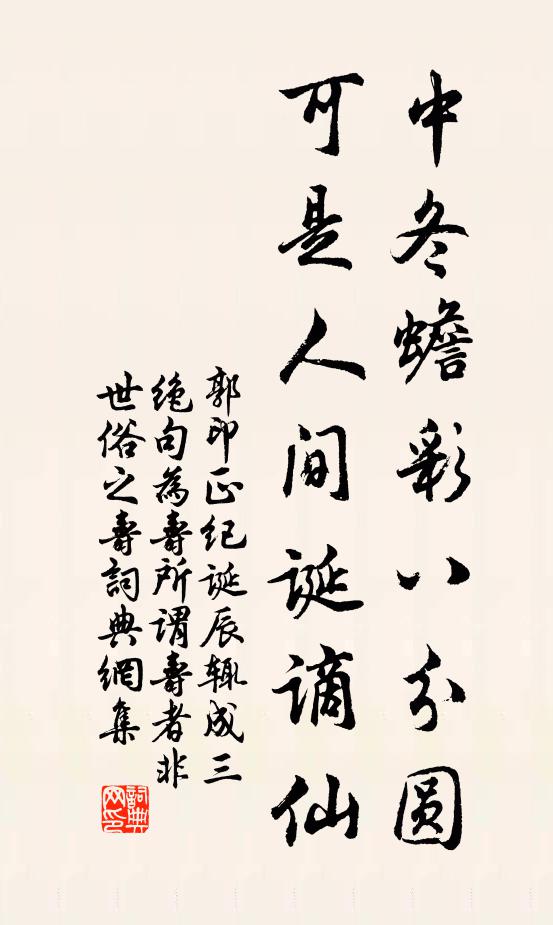 中冬蟾彩八分圆
可是人间诞谪仙
郭印正纪诞辰辄成三
绝句為壽所谓壽者非
世俗之壽詞典網集
詞典网印